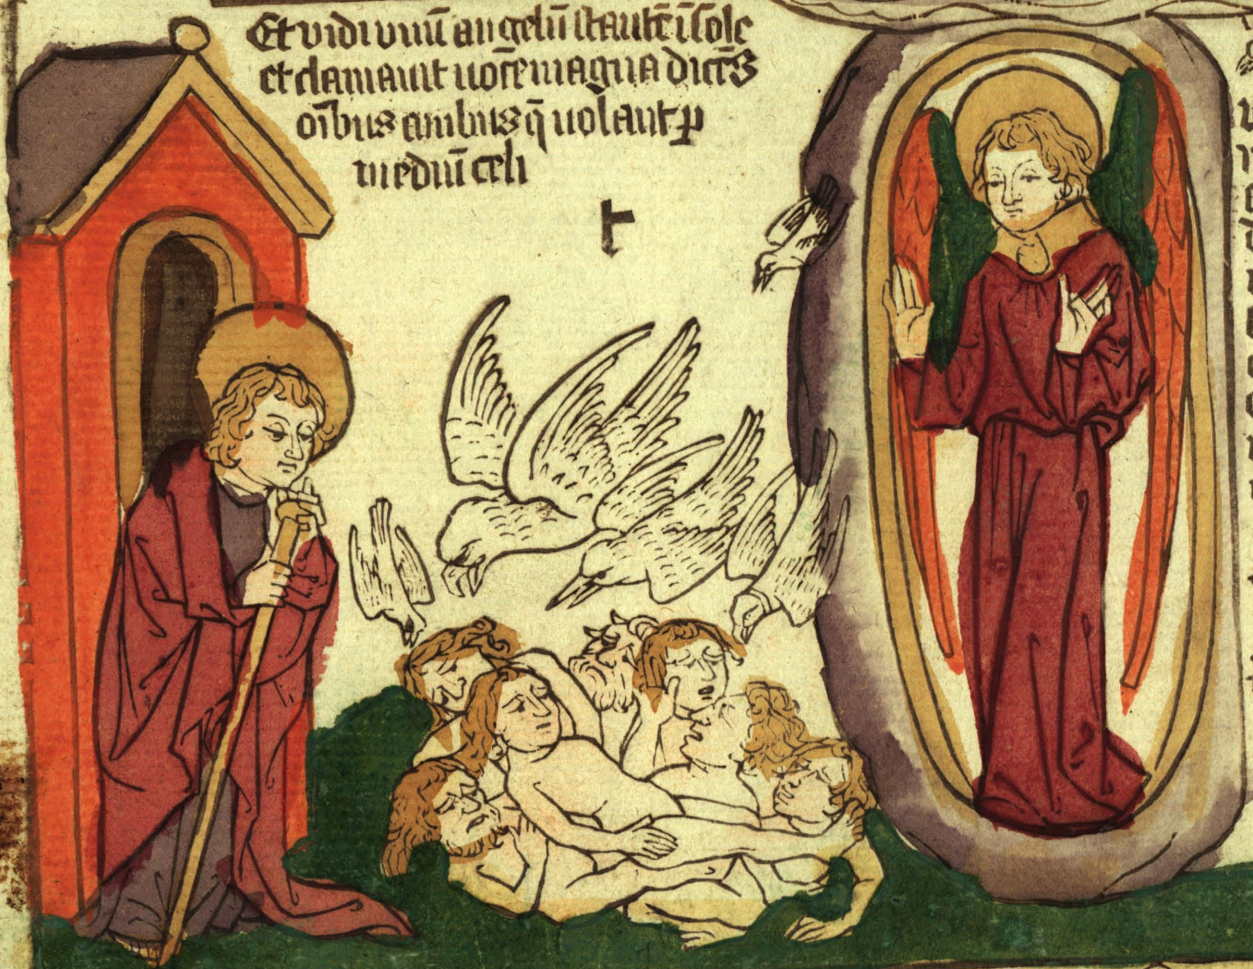 Et vidi vnū angelū stantē ī sole
et clamauit uocē magna dicēs
oībus auibus q̄ uolant ꝑ
mediū celi
t